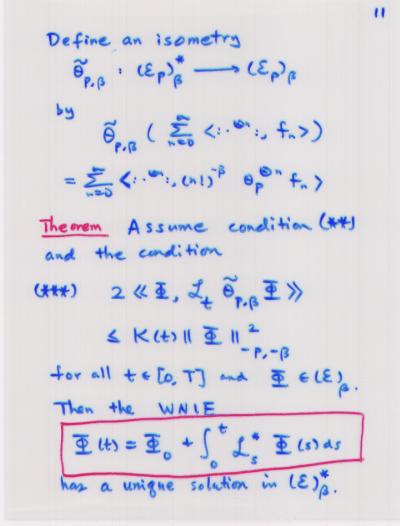 11
Define an isometry
θ̃_{p,β} : (ℰ_p)*_β ⟶ (ℰ_p)_β
by
θ̃_{p,β} ( ∑_{n=0}^{∞} <: ·^{⊗n} :, f_n > )
= ∑_{n=0}^{∞} <: ·^{⊗n} :, (n!)^{-β} θ_p^{⊗n} f_n >
Theorem Assume condition (**)
and the condition
(***) 2 ≪ Φ, ℒ_t θ̃_{p,β} Φ ≫
≤ K(t) ‖ Φ ‖²_{-p,-β}
for all t ∈ [0, T] and Φ ∈ (ℰ)_β.
Then the WNIE
Φ(t) = Φ_0 + ∫_0^t ℒ_s^* Φ(s) ds
has a unique solution in (ℰ)*_β.